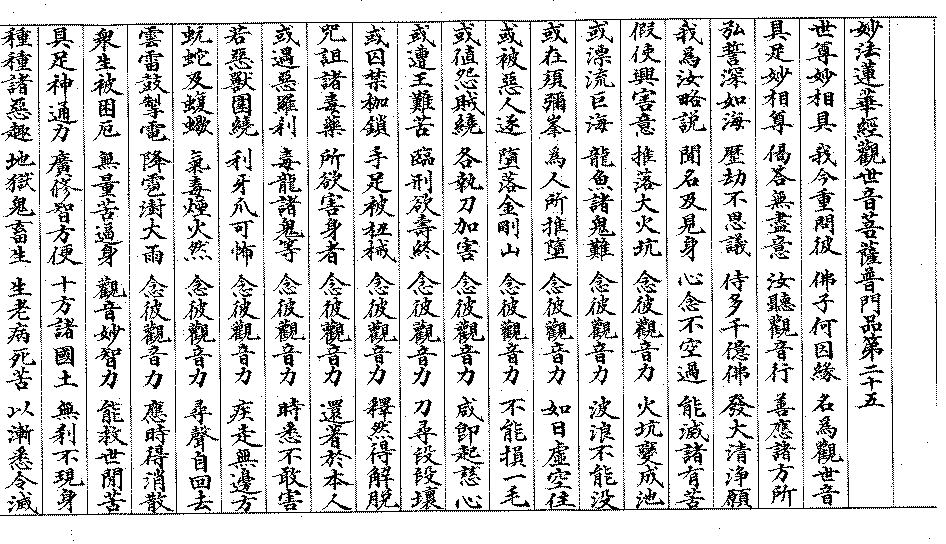 妙法蓮華經觀世音菩薩普門品第二十五
世尊妙相具 我今重問彼 佛子何因緣 名為觀世音
具足妙相尊 偈答無盡意 汝聽觀音行 善應諸方所
弘誓深如海 歷劫不思議 侍多千億佛 發大清淨願
我為汝略說 聞名及見身 心念不空過 能滅諸有苦
假使興害意 推落大火坑 念彼觀音力 火坑變成池
或漂流巨海 龍魚諸鬼難 念彼觀音力 波浪不能沒
或在須彌峯 為人所推墮 念彼觀音力 如日虛空住
或被惡人逐 墮落金剛山 念彼觀音力 不能損一毛
或值怨賊繞 各執刀加害 念彼觀音力 咸即起慈心
或遭王難苦 臨刑欲壽終 念彼觀音力 刀尋段段壞
或囚禁枷鎖 手足被杻械 念彼觀音力 釋然得解脫
咒詛諸毒藥 所欲害身者 念彼觀音力 還著於本人
或遇惡羅剎 毒龍諸鬼等 念彼觀音力 時悉不敢害
若惡獸圍繞 利牙爪可怖 念彼觀音力 疾走無邊方
蚖蛇及蝮蠍 氣毒煙火然 念彼觀音力 尋聲自回去
雲雷鼓掣電 降雹澍大雨 念彼觀音力 應時得消散
眾生被困厄 無量苦逼身 觀音妙智力 能救世間苦
具足神通力 廣修智方便 十方諸國土 無剎不現身
種種諸惡趣 地獄鬼畜生 生老病死苦 以漸悉令滅